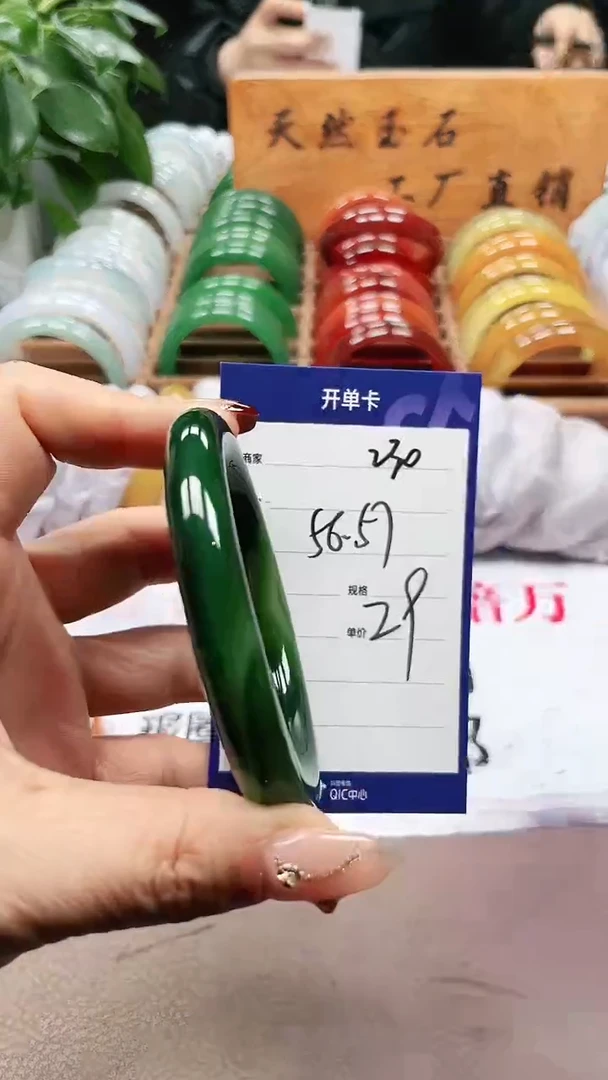 天然玉石
工厂直销
开单卡
商家 230
56-57
规格
单价 29
倍万
抖音电商
QIC中心